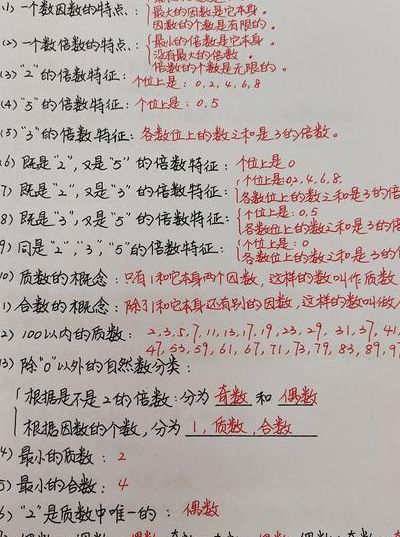 (1) 一个数因数的特点：
最大的因数是它本身。
因数的个数是有限的。
(2) 一个数倍数的特点：
最小的倍数是它本身。
没有最大的倍数。
倍数的个数是无限的。
(3) "2"的倍数特征：个位上是：0,2,4,6,8
(4) "5"的倍数特征：个位上是：0,5
(5) "3"的倍数特征：各数位上的数之和是3的倍数。
(6) 既是"2",又是"5"的倍数特征：个位上是0
7) 既是"2",又是"3"的倍数特征：个位上是:0,2,4,6,8.
各数位上的数之和是3的倍
8) 既是"3",又是"5"的倍数特征：个位上是:0,5
各数位上的数之和是3的倍
9) 同是"2","3","5"的倍数特征：个位上是:0
各数位上的数之和是3的
10) 质数的概念：只有1和它本身两个因数，这样的数叫作质数
1) 合数的概念：除了1和它本身还有别的因数，这样的数叫做
2) 100以内的质数：2,3,5,7,11,13,17,19,23,29,31,37,41
47,53,59,61,67,71,73,79,83,89,97
3) 除"0"以外的自然数分类：
根据是不是2的倍数:分为 奇数 和 偶数
根据因数的个数，分为 1,质数,合数
4) 最小的质数：2
5) 最小的合数：4
6) "2"是质数中唯一的：偶数